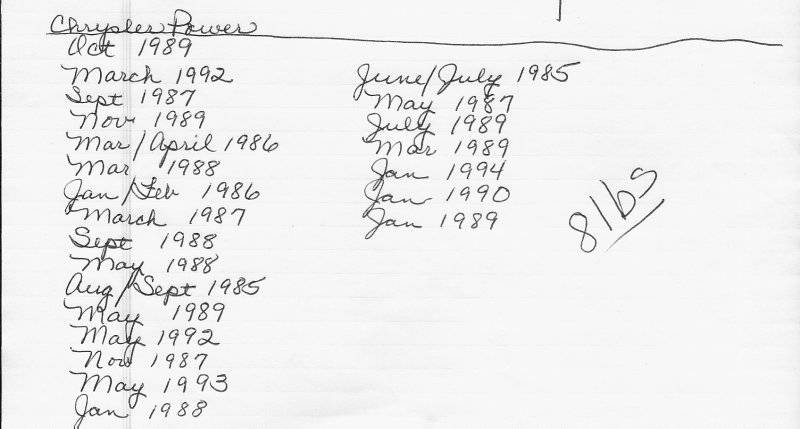 Chrysler Power
Oct 1989
March 1992
Sept 1987
Nov 1989
Mar/April 1986
Mar 1988
Jan/Feb 1986
March 1987
Sept 1988
May 1988
Aug/Sept 1985
May 1989
May 1992
Nov 1987
May 1993
Jan 1988
June/July 1985
May 1987
July 1989
Mar 1989
Jan 1994
Jan 1990
Jan 1989
8 lbs